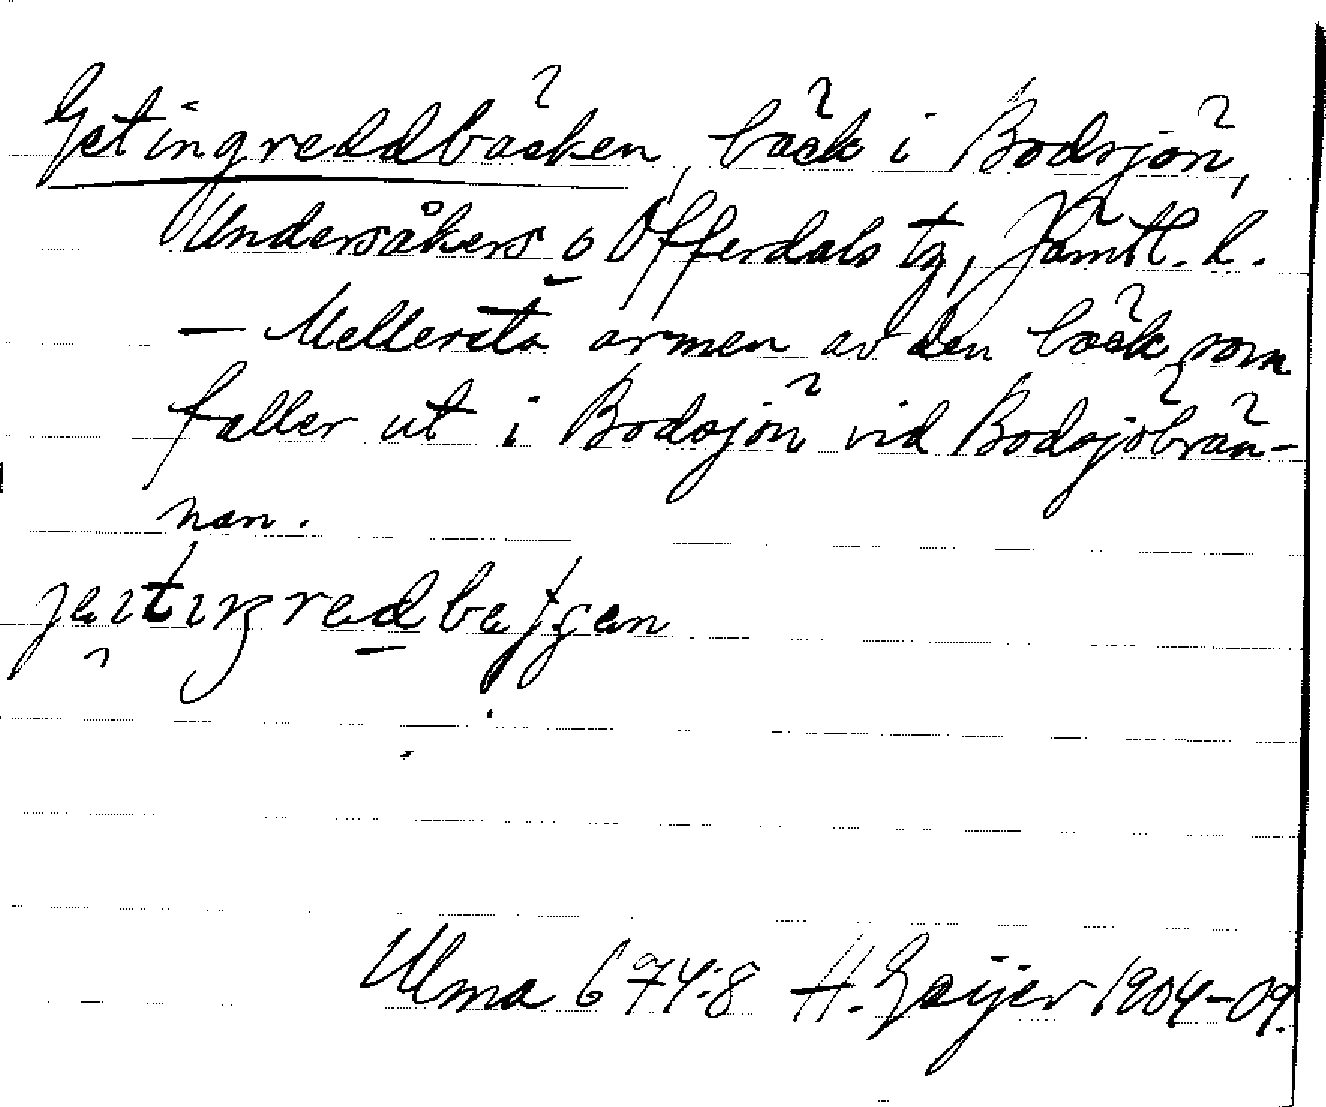 Getingreddbäcken, bäck i Bodsjön,
Undersåkers o Offerdals tg, Jämtl. l.
– Mellersta armen av den bäck som
faller ut i Bodsjön vid Bodsjöbrän-
nan.
Ulma 674:8 H. Geijer 1904–09.